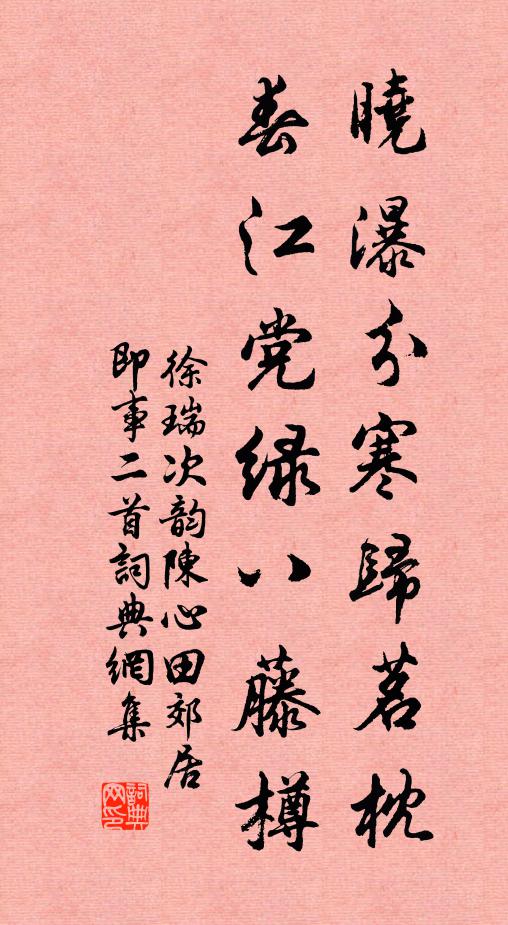 曉瀑分寒歸茗枕
春江党绿八藤樽
徐瑞次韵陳心田郊居
即事二首詞典網集
詞典网印